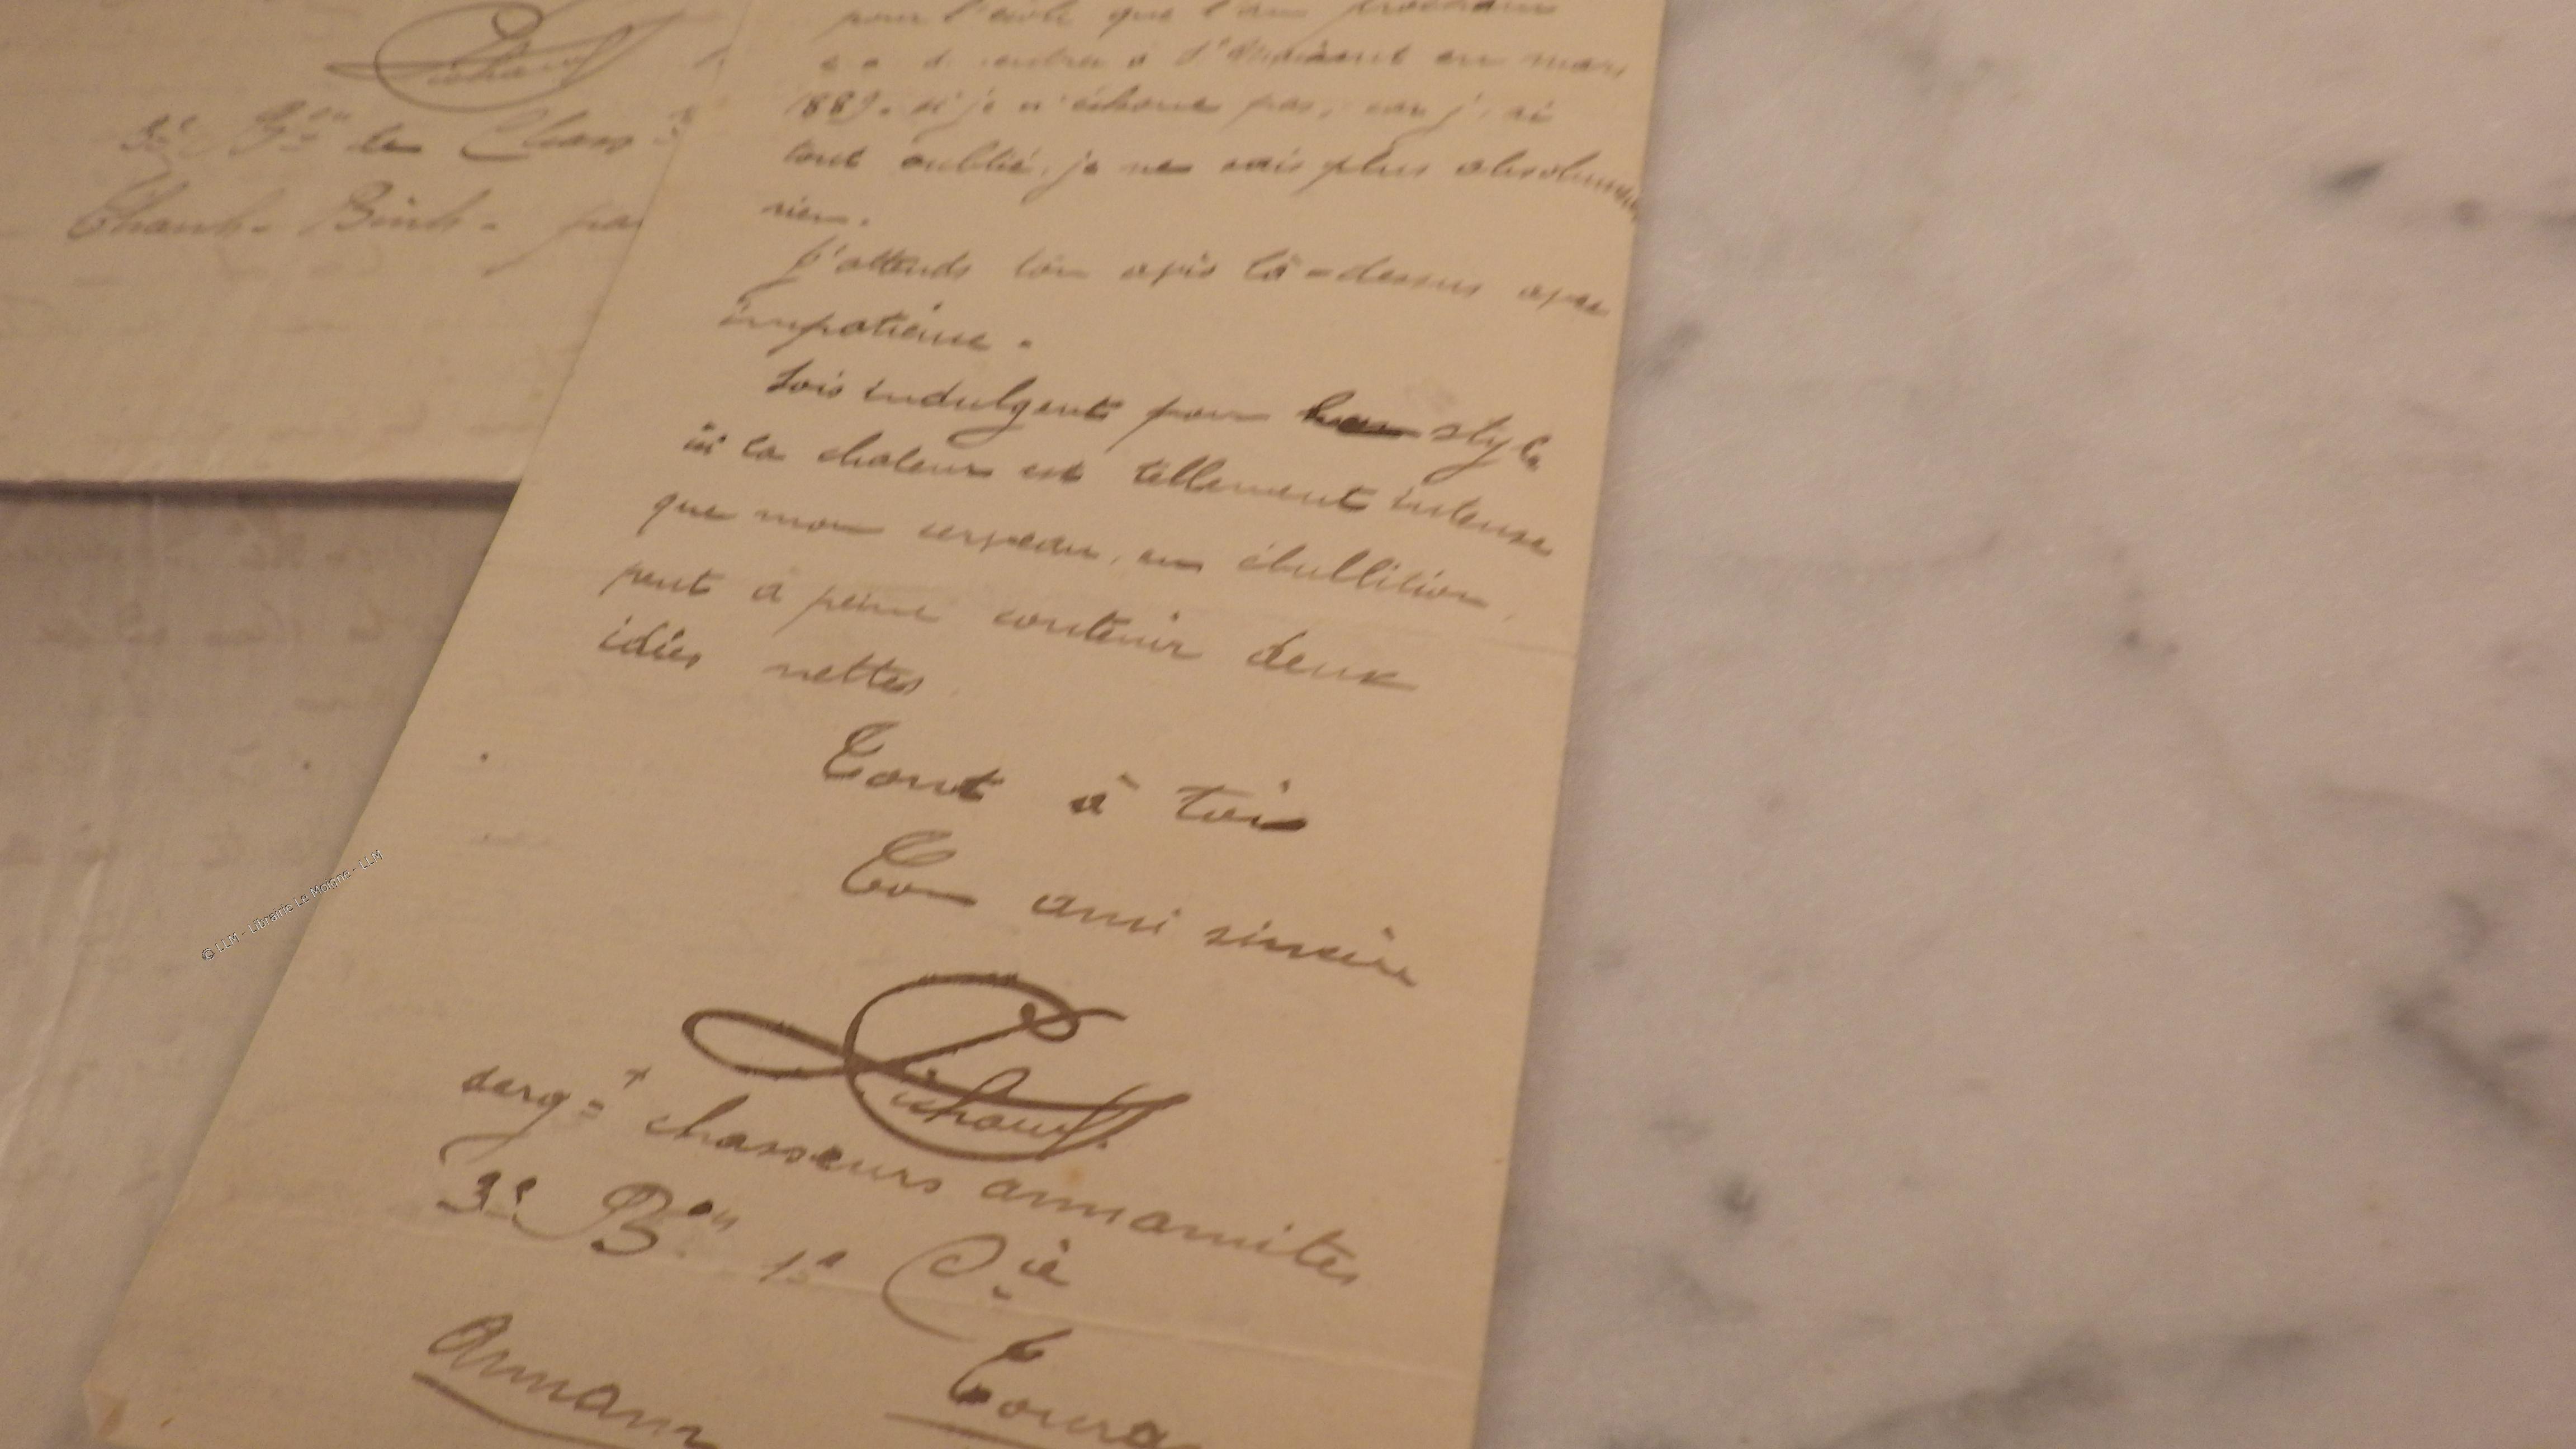 Richaud
3e Bon de Chass
Thanh-Binh- par
pour l'école que l'an prochain
entrer à en mars
1889. si je n'échoue pas, car j'ai
tout oublié, je ne sais plus absolument
rien.
J'attends ton avis là-dessus avec
impatience.
Sois indulgent pour style
ici la chaleur est tellement intense
que mon cerveau, en ébullition,
peut à peine contenir deux
idées nettes.
Tout à toi
Ton ami sincère
Richaud.
sergt chasseurs annamites
3e Bon 1e Cie
Annam Toura
© LLM - Librairie Le Moigne - LLM